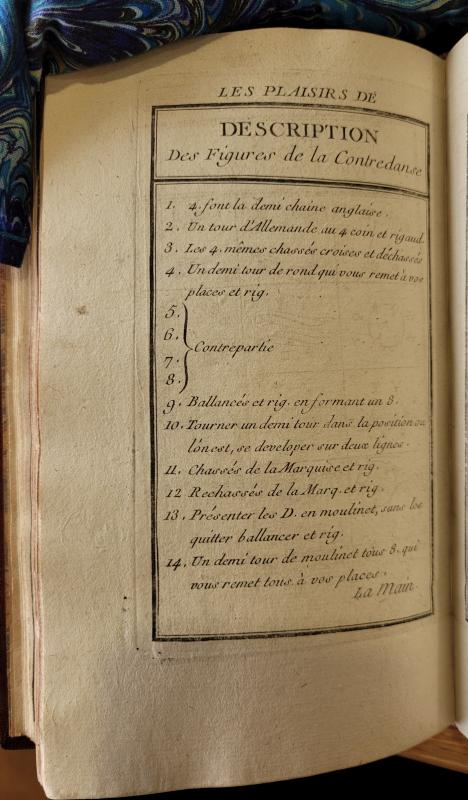 LES PLAISIRS DE
DESCRIPTION
Des Figures de la Contredanse
1. 4. font la demi chaine anglaise.
2. Un tour d'Allemande au 4 coin et rigaud.
3. Les 4. mêmes chassés croises et déchassés
4. Un demi tour de rond qui vous remet à vos
places et rig.
5.
6.
Contrepartie
7.
8.
9. Ballancés et rig. en formant un 8.
10. Tourner un demi tour dans la position ou
lónest, se developer sur deux lignes.
11. Chassés de la Marquise et rig.
12 Rechassés de la Marq. et rig.
13. Présenter les D. en moulinet, sans les
quitter ballancer et rig.
14. Un demi tour de moulinet tous 8. qui
vous remet tous à vos places.
La Main.